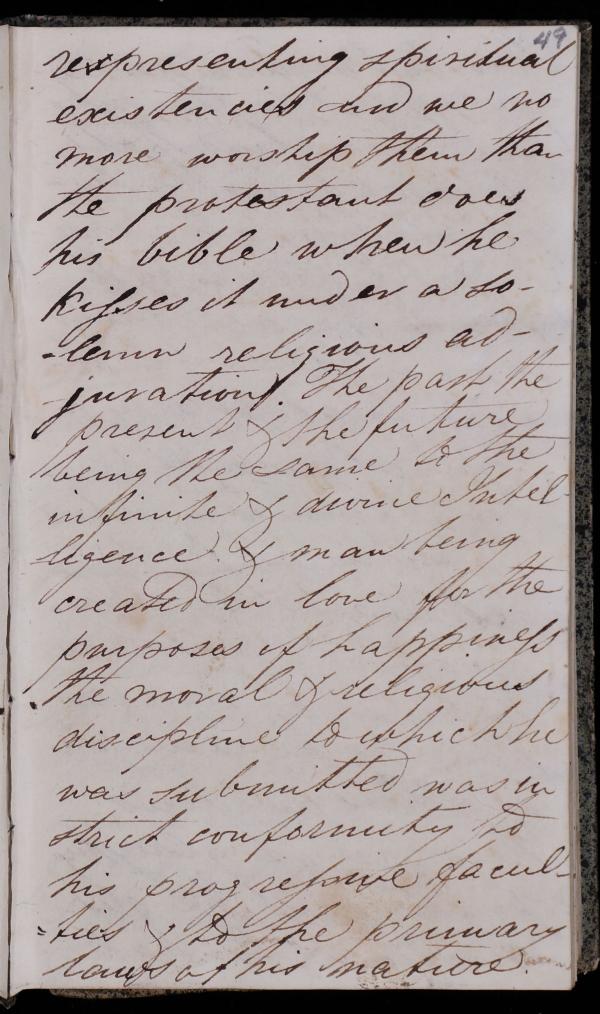 49
representing spiritual
existencies and we no
more worship them than
the protestant does
his bible when he
kisses it under a so-
-lemn religious ad-
-juration. The past the
present & the future
being the same to the
infinite & divine Intel-
ligence & man being
created in love for the
purposes of happiness
the moral & religious
discipline to which he
was submitted was in
strict conformity to
his progressive facul-
=ties & to the primary
laws of his nature.